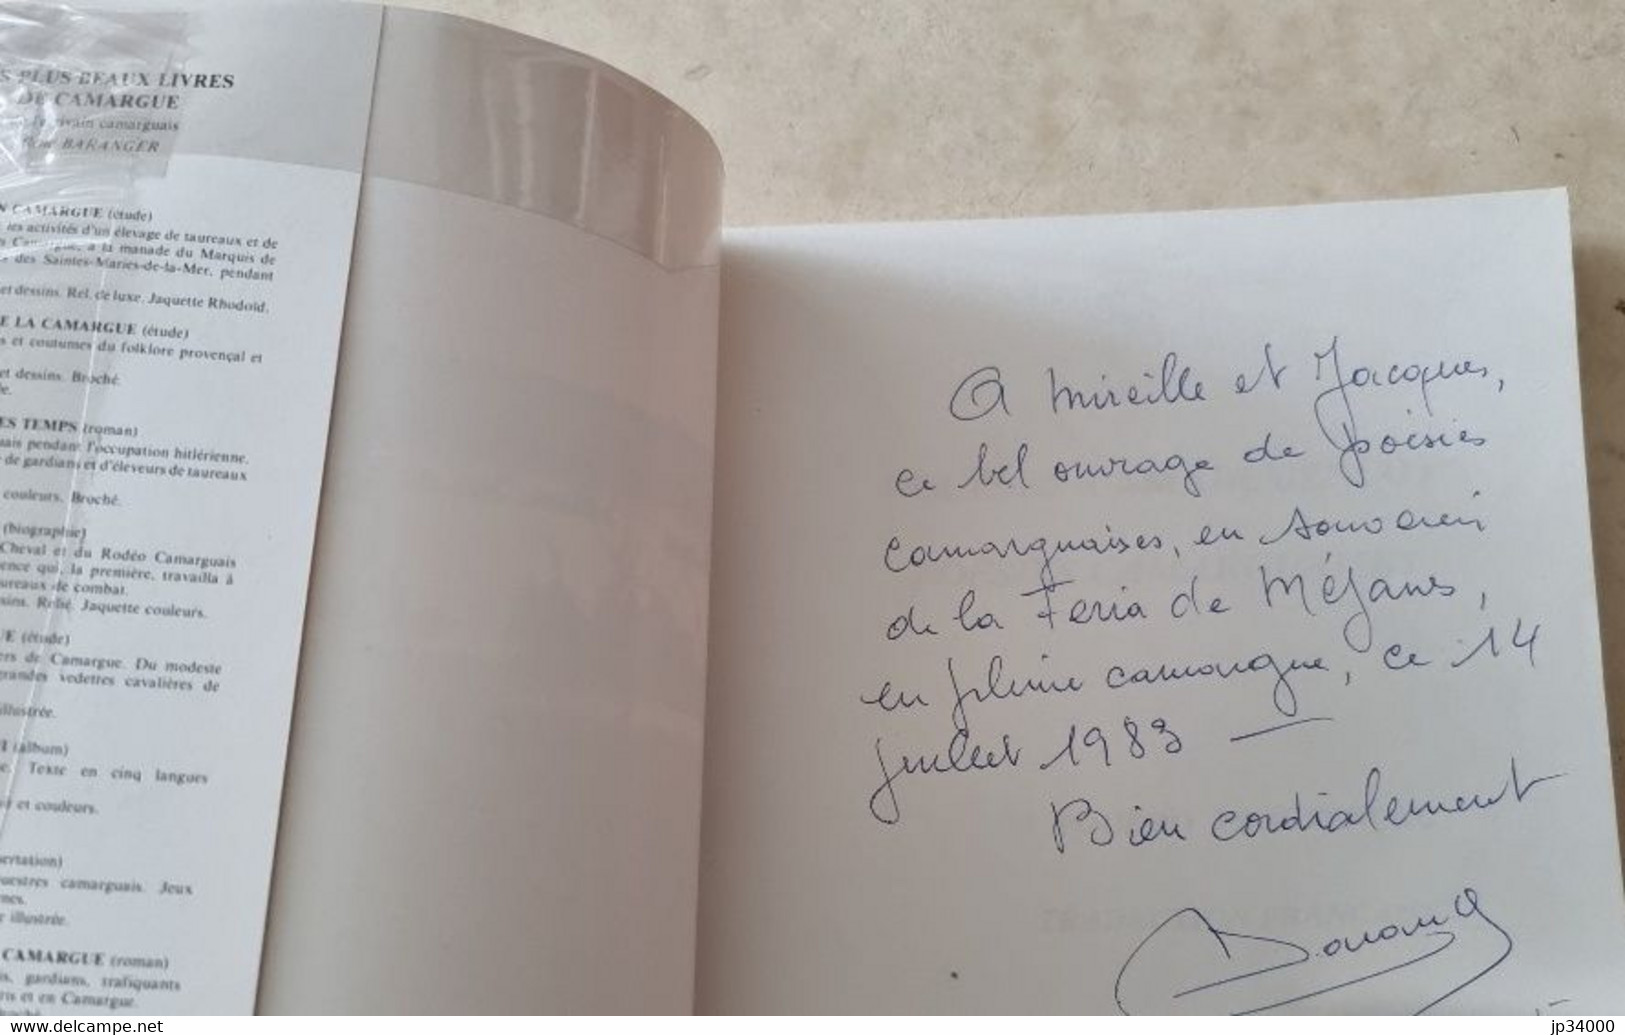 PLUS BEAUX LIVRES
DE CAMARGUE
camarguais
BARANGER
CAMARGUE (étude)
les activités d'un élevage de taureaux et de
à la manade du Marquis de
des Saintes-Maries-de-la-Mer, pendant
et dessins. Rel. de luxe. Jaquette Rhodoïd.
LA CAMARGUE (étude)
et coutumes du folklore provençal et
et dessins. Broché.
TEMPS (roman)
pendant l'occupation hitlérienne.
de gardians et d'éleveurs de taureaux
couleurs. Broché.
(biographie)
Cheval et du Rodéo Camarguais
qui, la première, travailla à
de combat.
Relié. Jaquette couleurs.
(étude)
de Camargue. Du modeste
grandes vedettes cavalières de
illustrée.
(album)
Texte en cinq langues
et couleurs.
camarguais. Jeux
illustrée.
CAMARGUE (roman)
gardians, trafiquants
et en Camargue.
A Mireille et Jacques,
ce bel ouvrage de poésies
camarguaises, en souvenir
de la Feria de Méjanes,
en pleine camargue, ce 14
juillet 1983 —
Bien cordialement
www.delcampe.net
jp34000